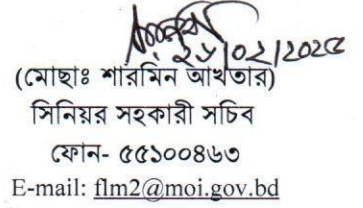 ২৬/০২/২০২৫
(মোছাঃ শারমিন আখতার)
সিনিয়র সহকারী সচিব
ফোন- ৫৫১০০৪৬৩
E-mail: flm2@moi.gov.bd